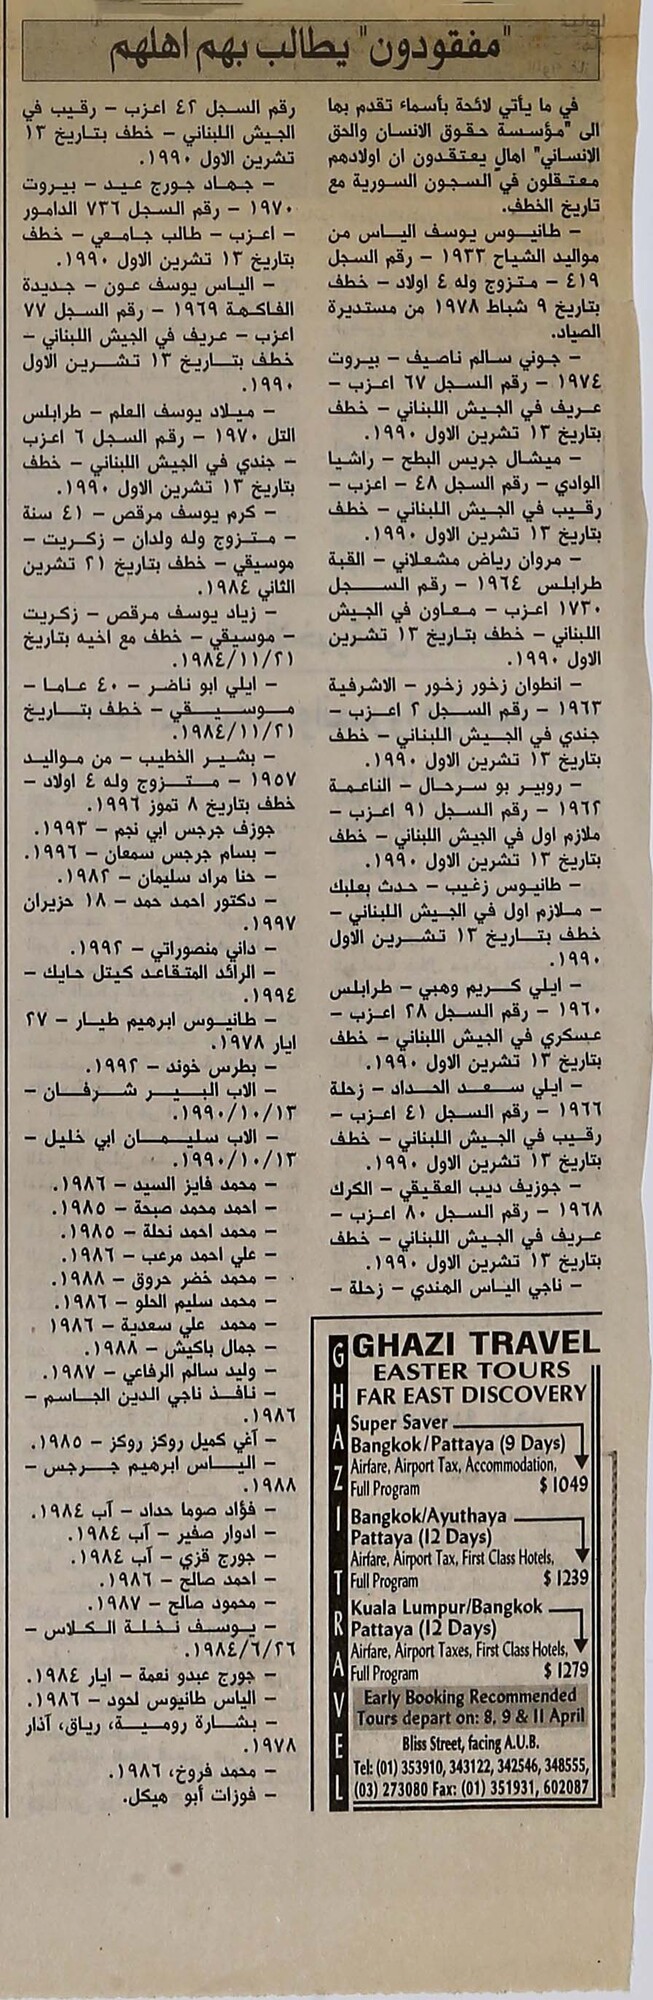 "مفقودون" يطالب بهم اهلهم
في ما يأتي لائحة بأسماء تقدم بها
الى "مؤسسة حقوق الانسان والحق
الإنساني" اهالٍ يعتقدون ان اولادهم
معتقلون في السجون السورية مع
تاريخ الخطف.
- طانيوس يوسف الياس من
مواليد الشياح ١٩٣٣ - رقم السجل
٤١٩ - متزوج وله ٤ اولاد - خطف
بتاريخ ٩ شباط ١٩٧٨ من مستديرة
الصياد.
- جوني سالم ناصيف - بيروت
١٩٧٤ - رقم السجل ٦٧ اعزب -
عريف في الجيش اللبناني - خطف
بتاريخ ١٣ تشرين الاول ١٩٩٠.
- ميشال جريس البطح - راشيا
الوادي - رقم السجل ٤٨ - اعزب -
رقيب في الجيش اللبناني - خطف
بتاريخ ١٣ تشرين الاول ١٩٩٠.
- مروان رياض مشعلاني - القبة
طرابلس ١٩٦٤ - رقم السجل
١٧٣٠ اعزب - معاون في الجيش
اللبناني - خطف بتاريخ ١٣ تشرين
الاول ١٩٩٠.
- انطوان زخور زخور - الاشرفية
١٩٦٣ - رقم السجل ٢ اعزب -
جندي في الجيش اللبناني - خطف
بتاريخ ١٣ تشرين الاول ١٩٩٠.
- روبير بو سرحال - الناعمة
١٩٦٢ - رقم السجل ٩١ اعزب -
ملازم اول في الجيش اللبناني - خطف
بتاريخ ١٣ تشرين الاول ١٩٩٠.
- طانيوس زغيب - حدث بعلبك
- ملازم اول في الجيش اللبناني -
خطف بتاريخ ١٣ تشرين الاول
١٩٩٠.
- ايلي كريم وهبي - طرابلس
١٩٦٠ - رقم السجل ٢٨ اعزب -
عسكري في الجيش اللبناني - خطف
بتاريخ ١٣ تشرين الاول ١٩٩٠.
- ايلي سعد الحداد - زحلة
١٩٦٦ - رقم السجل ٤١ اعزب -
رقيب في الجيش اللبناني - خطف
بتاريخ ١٣ تشرين الاول ١٩٩٠.
- جوزيف ديب العقيقي - الكرك
١٩٦٨ - رقم السجل ٨٠ اعزب -
عريف في الجيش اللبناني - خطف
بتاريخ ١٣ تشرين الاول ١٩٩٠.
- ناجي الياس الهندي - زحلة -
رقم السجل ٤٢ اعزب - رقيب في
الجيش اللبناني - خطف بتاريخ ١٣
تشرين الاول ١٩٩٠.
- جهاد جورج عيد - بيروت
١٩٧٠ - رقم السجل ٧٣٦ الدامور
- اعزب - طالب جامعي - خطف
بتاريخ ١٣ تشرين الاول ١٩٩٠.
- الياس يوسف عون - جديدة
الفاكهة ١٩٦٩ - رقم السجل ٧٧
اعزب - عريف في الجيش اللبناني -
خطف بتاريخ ١٣ تشرين الاول
١٩٩٠.
- ميلاد يوسف العلم - طرابلس
التل ١٩٧٠ - رقم السجل ٦ اعزب
- جندي في الجيش اللبناني - خطف
بتاريخ ١٣ تشرين الاول ١٩٩٠.
- كرم يوسف مرقص - ٤١ سنة
- متزوج وله ولدان - زكريت -
موسيقي - خطف بتاريخ ٢١ تشرين
الثاني ١٩٨٤.
- زياد يوسف مرقص - زكريت
- موسيقي - خطف مع اخيه بتاريخ
١٩٨٤/١١/٢١.
- ايلي ابو ناضر - ٤٠ عاما -
موسيقي - خطف بتاريخ
١٩٨٤/١١/٢١.
- بشير الخطيب - من مواليد
١٩٥٧ - متزوج وله ٤ اولاد -
خطف بتاريخ ٨ تموز ١٩٩٦.
جوزف جرجس ابي نجم - ١٩٩٣.
- بسام جرجس سمعان - ١٩٩٦.
- حنا مراد سليمان - ١٩٨٢.
- دكتور احمد حمد - ١٨ حزيران
١٩٩٧.
- داني منصوراتي - ١٩٩٢.
- الرائد المتقاعد كيتل حايك -
١٩٩٤.
- طانيوس ابرهيم طيار - ٢٧
ايار ١٩٧٨.
- بطرس خوند - ١٩٩٢.
- الاب البير شرفان -
١٩٩٠/١٠/١٣.
- الاب سليمان ابي خليل -
١٩٩٠/١٠/١٣.
- محمد فايز السيد - ١٩٨٦.
- احمد محمد صبحة - ١٩٨٥.
- محمد احمد نحلة - ١٩٨٥.
- علي احمد مرعب - ١٩٨٦.
- محمد خضر حروق - ١٩٨٨.
- محمد سليم الحلو - ١٩٨٦.
- محمد علي سعدية - ١٩٨٦.
- جمال باكيش - ١٩٨٨.
- وليد سالم الرفاعي - ١٩٨٧.
- نافذ ناجي الدين الجاسم -
١٩٨٦.
- آغي كميل روكز روكز - ١٩٨٥.
- الياس ابرهيم جرجس -
١٩٨٨.
- فؤاد صوما حداد - آب ١٩٨٤.
- ادوار صفير - آب ١٩٨٤.
- جورج قزي - آب ١٩٨٤.
- احمد صالح - ١٩٨٦.
- محمود صالح - ١٩٨٧.
- يوسف نخلة الكلاس -
١٩٨٤/٦/٢٦.
- جورج عبدو نعمة - ايار ١٩٨٤.
- الياس طانيوس لحود - ١٩٨٦.
- بشارة رومية، رياق، آذار
١٩٧٨.
- محمد فروخ، ١٩٨٦.
- فوزات أبو هيكل.
GHAZI TRAVEL
GHAZI TRAVEL
EASTER TOURS
FAR EAST DISCOVERY
Super Saver
Bangkok/Pattaya (9 Days)
Airfare, Airport Tax, Accommodation,
Full Program $ 1049
Bangkok/Ayuthaya
Pattaya (12 Days)
Airfare, Airport Tax, First Class Hotels,
Full Program $ 1239
Kuala Lumpur/Bangkok
Pattaya (12 Days)
Airfare, Airport Taxes, First Class Hotels,
Full Program $ 1279
Early Booking Recommended
Tours depart on: 8, 9 & 11 April
Bliss Street, facing A.U.B.
Tel: (01) 353910, 343122, 342546, 348555,
(03) 273080 Fax: (01) 351931, 602087